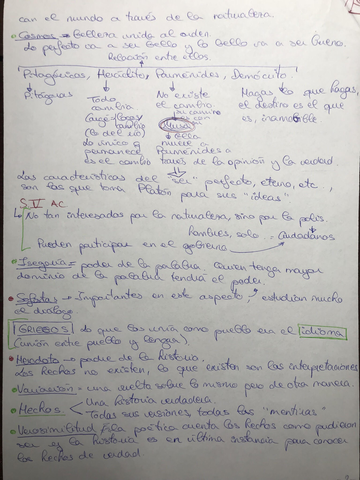 can el mundo a través de la naturaleza.
• Cosmos = Belleza unida al orden.
Lo perfecto va a ser bello y lo bello va a ser bueno.
Relación entre ellos.
Pitagóricos, Heráclito, Parménides, Demócrito.
Pitágoras
Todo cambia
(lo del río)
Lo único q permanece es el cambio
No existe el cambio
su camino es con
Musa
Ella
mueve a Parménides a través de la opinión y la verdad.
Hagas lo que hagas, el destino es el que es, inamovible
Las características del "ser" perfecto, eterno, etc...,
son las que toma Platón para sus "ideas"
S. V A.C.
No tan interesados por la naturaleza, sino por la polis.
Hombres, solo ciudadanos
Pueden participar en el gobierno
• Isegoría = poder de la palabra. Quien tenga mayor
dominio de la palabra tendrá el poder.
• Sofistas → Importantes en este aspecto, estudian mucho
el diálogo.
• GRIEGOS Lo que los unía como pueblo era el idioma
(unión entre pueblo y lengua).
• Herodoto → padre de la historia.
Los hechos no existen, lo que existen son las interpretaciones
• Variación = una vuelta sobre lo mismo pero de otra manera.
• Hechos < Una historia verdadera.
Todas sus visiones, todas las "mentiras"
• Verosimilitud / La poética cuenta los hechos como pudieron
ser y la historia es en última instancia para conocer
los hechos de verdad